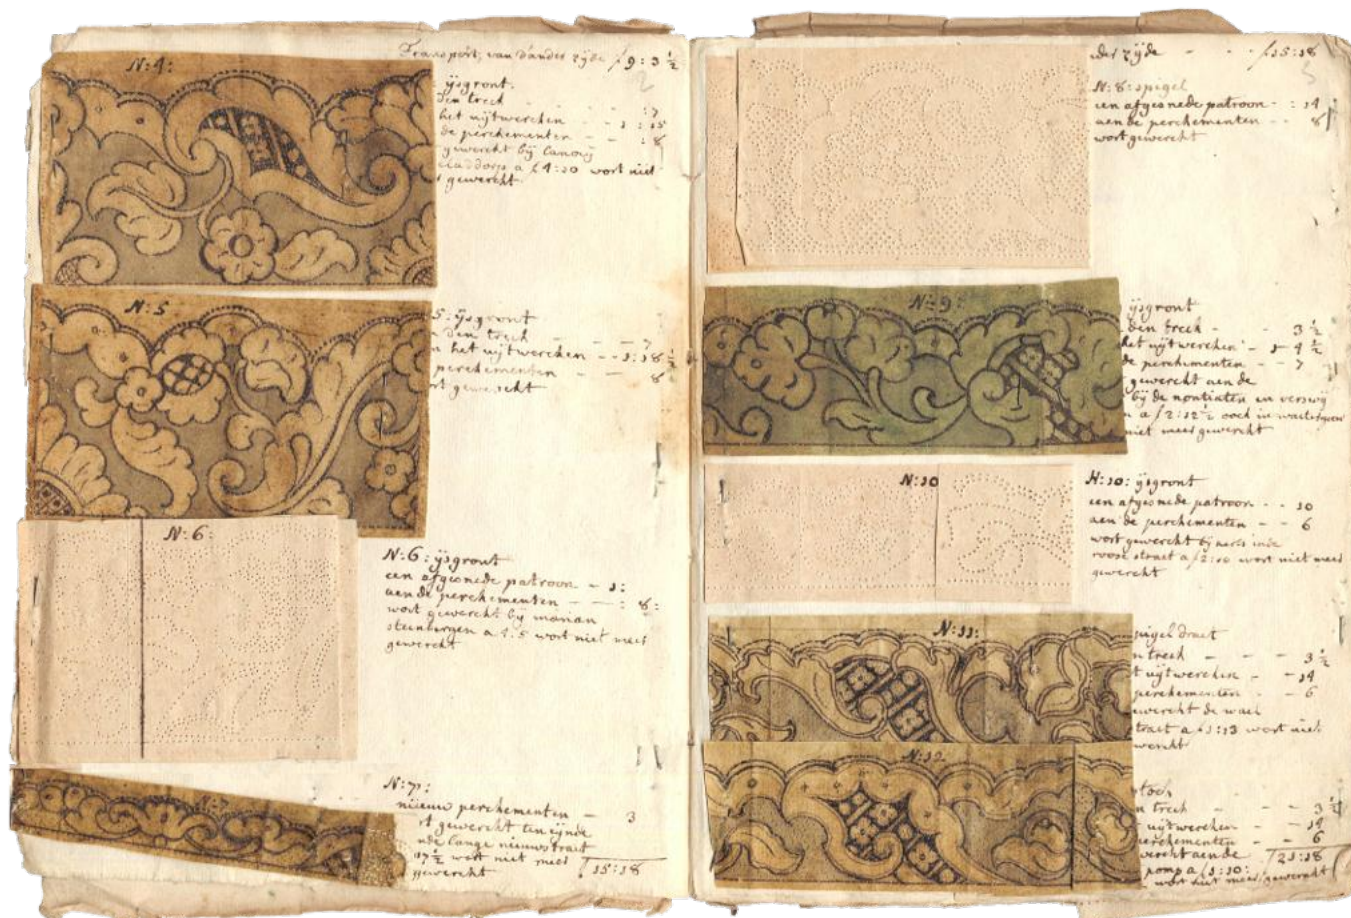 Transport, van dander zijde f 9:3 ½
2
N:4:
ijsgront.
den treck - - - :7
het uijtwercken - - 1:15
de perchementen - - :8
gewercht bij
a f 4:10 wort niet
gewercht.
N:5
5: ijsgront
den treck - - - 7
het uijtwercken - - 1:18 ½
perchementen - - 8
gewercht
N:6:
N:6: ijsgront
een afgesnede patroon - 1:
aen de perchementen - - : 8:
wort gewercht bij
steenbergen a f:5 wort niet meer
gewercht
N:7:
nieuw perchementen - 3
gewercht ten eijnde
lange nieuwstraet
17 ½ wort niet meer
gewercht
f 15:18
der zijde - - - f 15:18
3
N:8: spigel
een afgesnede patroon - : 14
aen de perchementen - - 8
wort gewercht
N:9:
ijsgront
den treck - - - 3 ½
het uijtwercken - 1 4 ½
de perchementen - - 7
gewercht aen de
bij de
a f 2:12 ½ oock in
niet meer gewercht
N:10
N:10: ijsgront
een afgesnede patroon - - 10
aen de perchementen - - 6
wort gewercht bij inde
roose straet a f 2:10 wort niet meer
gewercht
N:11:
spigel draet
treck - - - 3 ½
uijtwercken - - 14
perchementen - - 6
gewercht de
straet a f 1:13 wort niet
N:12
treck - - - 3 ½
uijtwercken - - 14
perchementen - - 6
aen de
f 21:18
pomp a f 1:10:
wort niet meer gewercht